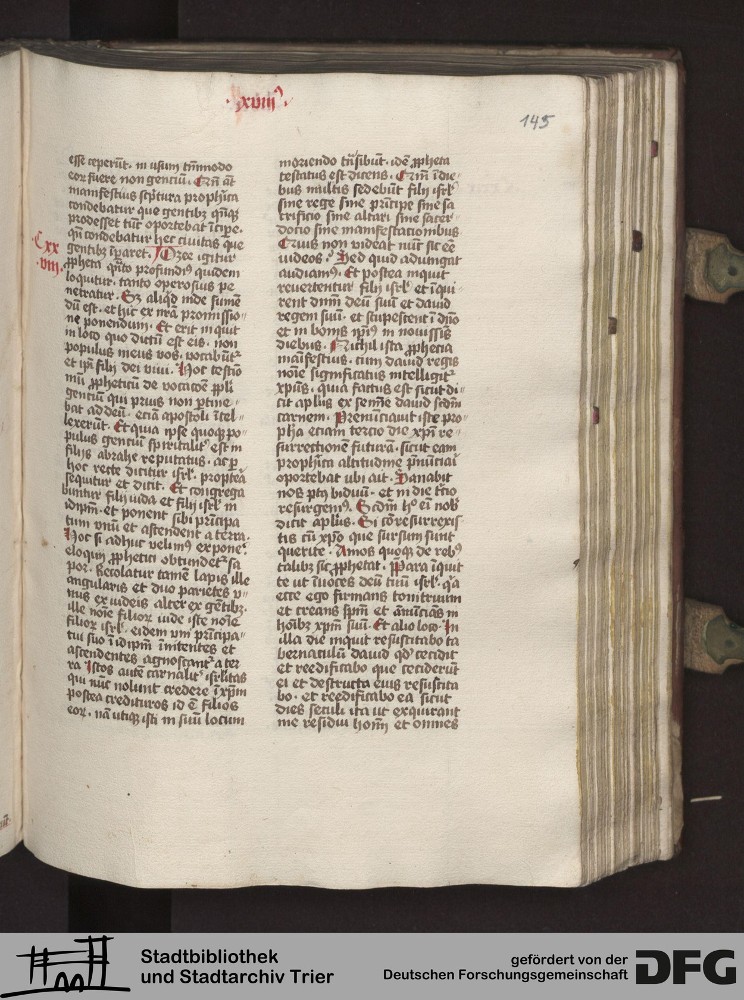 .xviii.
145
esse ceperūt. in usum tm̄modo
eoꝝ fuere non gentiū. Cū aūt
manifestius sc̄ptura ꝓphīca
condebatur que gentibꝫ qn̄qꝫ
prodesset tūc oportebat īcipe.
qn̄ condebatur hec ciuitas que
gentibꝫ īparet. Ozee igitur
.Cxx
viii.
ꝓpheta qūto profundiꝰ quidem
loquitur. tanto operosius pe
netratur. Sꝫ aliqd̄ inde sumē
dū est. et hic ex nr̄a promissio
ne ponendum. Et erit inquit
in loco quo dictū est eis. non
populus meus vos. vocabūtꝰ
et ip̄i filij dei viui. Hoc testīo
niū ꝓpheticū de vocacōe ppli
gentiū qui prius non ptine
bat ad deū. eciā apostoli ītel
lexerūt. Et quia ipse quoqꝫ po
pulus gentiū spiritalitꝰ est in
filijs abrahe reputatus. ac ꝑ
hoc recte dicitur isrl̄. propterea
sequitur et dicit. Et congrega
buntur filij iuda et filij isrl̄ in
idip̄m. et ponent sibi prīcipa
tum vnū et ascendent a terra.
Hoc si adhuc velimꝰ expone
eloquij ꝓphetici obtundetꝰ sa
por. Recolatur tamē lapis ille
angularis et duo parietes v
nus ex iudeis alter ex gētibꝫ.
ille noīe filioꝝ iude iste noīe
filioꝝ isrl̄. eidem vni prīcipa
tui suo ī idip̄m īnitentes et
ascendentes agnoscantꝰ a ter
ra Istos autē carnalitꝰ isrl̄itas
qui nūc nolunt credere ī xp̄m
postea credituros id ē filios
eoꝝ. nā utiqꝫ isti in suū locum
moriendo trāsibūt. idē ꝓpheta
testatus est dicens. Qm̄ ī die
bus multis sedebūt filij isrl̄
sine rege sine prīcipe sine sa
crificio sine altari sine sacer
docio sine manifestacionibus
Quis non videat nūc sic eē
iudeos. Sed quid adiungat
audiamꝰ. Et postea inquit
reuertentur filij isrl̄ et īqui
rent dnm̄ deū suū et dauid
regem suū. et stupescent ī dn̄o
et in bonis ip̄iꝰ in nouissīs
diebus. Nichil ista ꝓphecia
manifestius. cum dauid regis
noīe significatus intelligitꝰ
xp̄us. quia factus est sicut di
cit apl̄us ex semīe dauid scdm̄
carnem. Prenūciauit iste pro
pha etiam tercio die xp̄i re
surrectionem futurā. sicut eam
prophīca altitudine p̄nūciai
oportebat vbi ait. Sanabit
nos pꝰ biduū. et in die tercio
resurgemꝰ. Scdm̄ hoc eī nob
dicit apl̄us. Si cōresurrexis
tis cū xp̄o que sursum sunt
querite. Amos quoqꝫ de rebꝰ
talibꝫ sic ꝓphetat. Para īquit
te ut īuoces deū tuū isrl̄. qa
ecce ego firmans tonitruum
et creans sp̄m et ānūciās in
hoībꝫ xp̄m suū. Et alio loco. In
illa die inquit resuscitabo ta
bernaculū dauid qd̄ cecidit
et reedificabo que ceciderūt
ei et destructa eius resuscita
bo. et reedificabo ea sicut
dies seculi ita ut exquirant
me residui hom̄ et omnes
Stadtbibliothek
und Stadtarchiv Trier
gefördert von der
Deutschen Forschungsgemeinschaft
DFG